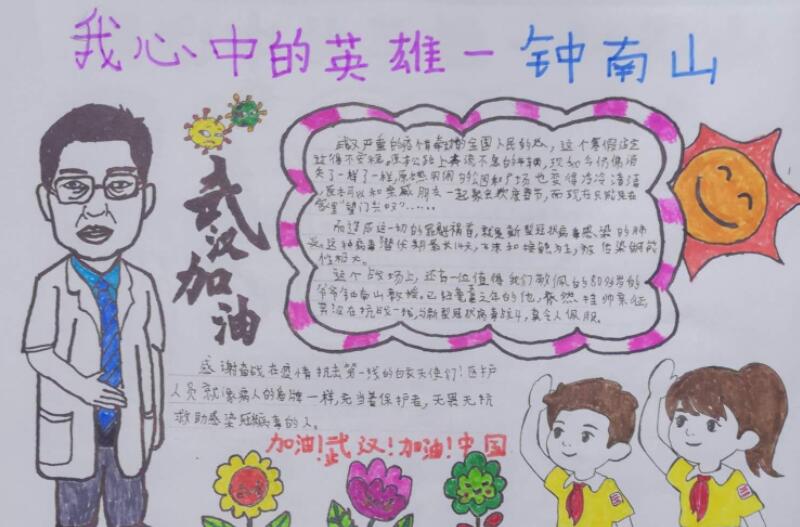 我心中的英雄一钟南山
武汉加油
武汉严重的疫情牵动的全国人民的心，这个寒假注定
过得不安稳。原本公路上奔流不息的车辆，现如今仿佛消
失了一样了一样，原热闹闹的公园和广场也变得冷冷清清
原本可以和亲戚朋友一起聚会欢度春节，而现在只能在
家里"望门兴叹"……
而造成这一切的罪魁祸首，就是新型冠状病毒感染的肺
炎。这种病毒潜伏期最长14天，飞沫和接触为主，被传染的可能
性极大。
这个战场上，还有一位值得我们敬佩的80多岁的
爷爷钟南山教授。已经耄耋之年的他，毅然挂帅亲征，
奔波在抗战一线，与新型冠状病毒战斗，真令人佩服。
感谢奋战在疫情抗击第一线的白衣天使们！医护
人员就像病人的盾牌一样，充当着保护者，无畏无抗
救助感染冠病毒的人。
加油！武汉！加油！中国